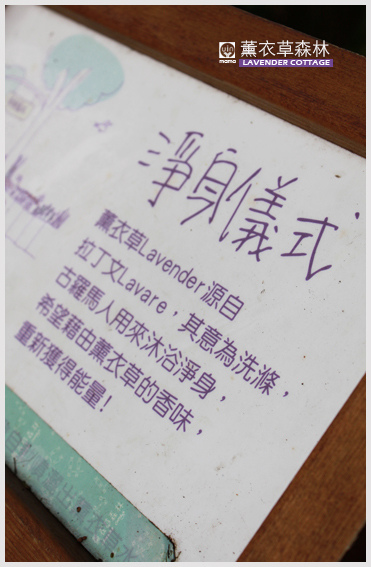 薰衣草森林
LAVENDER COTTAGE
mama
淨身儀式
薰衣草Lavender源自
拉丁文Lavare，其意為洗滌，
古羅馬人用來沐浴淨身，
希望藉由薰衣草的香味，
重新獲得能量！